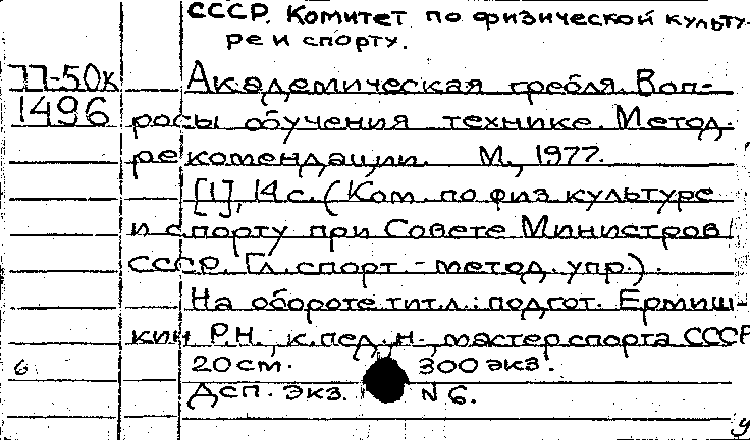 СССР. Комитет по физической культу-
ре и спорту.
77-50к Академическая гребля. Воп-
1496 росы обучения технике. Метод.
рекомендации. М., 1977.
[1], 14 с. (Ком. по физ. культуре
и спорту при Совете Министров
СССР. Гл. спорт.-метод. упр.).
На обороте тит.л.: подгот. Ермиш-
кин Р.Н., к.пед.н., мастер спорта СССР
6 20 см. 300 экз.
Дсп. Экз. N 6.